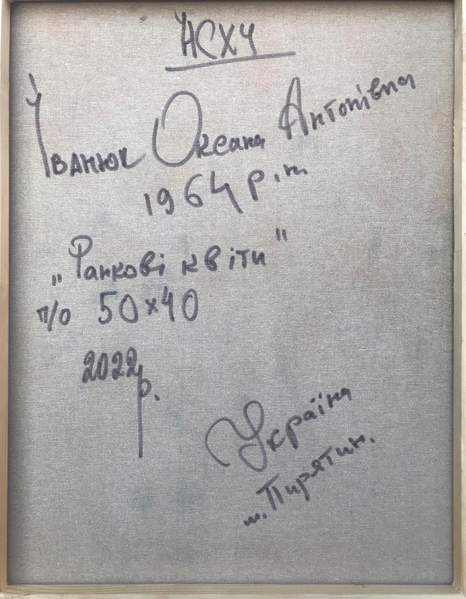 НСХУ
Іванюк Оксана Антонівна
1964 р.н.
„Ранкові квіти"
п/о 50×40
2022 р.
Україна
м. Пирятин.